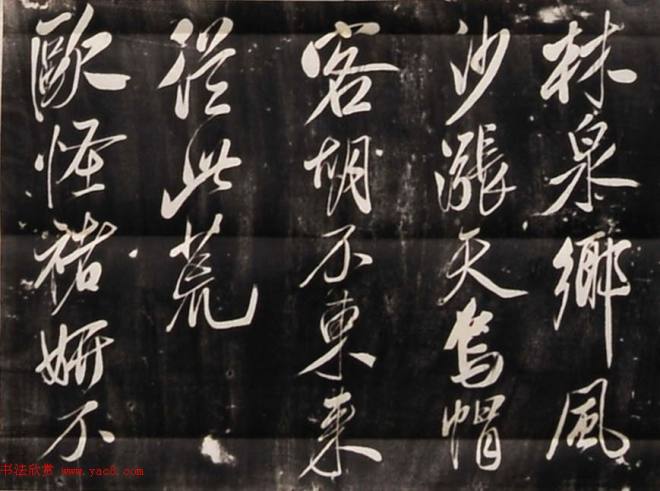 林泉鄉風
沙漲天烏帽
客胡不東來
從此荒
歐怪褚妍不
书法欣赏 www.yac8.com